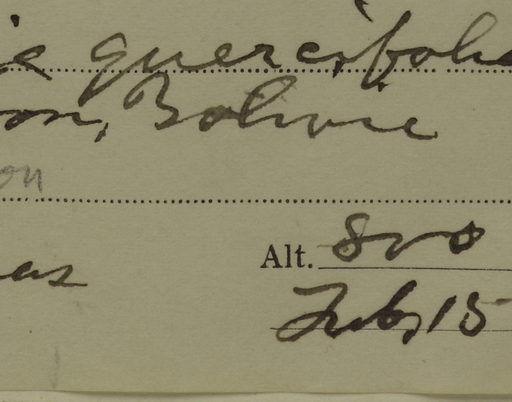 quercifolia
on, Bolivia
on
as
Alt. 800
July 15